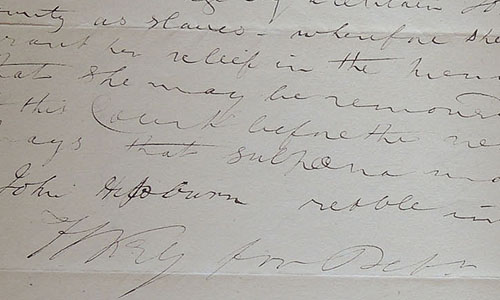 unty as slaves - wherefore she
rant her relief in the
that she may be remov
this Court before the ne
ays that subpœna
John Hepburn
F S Key for Petr